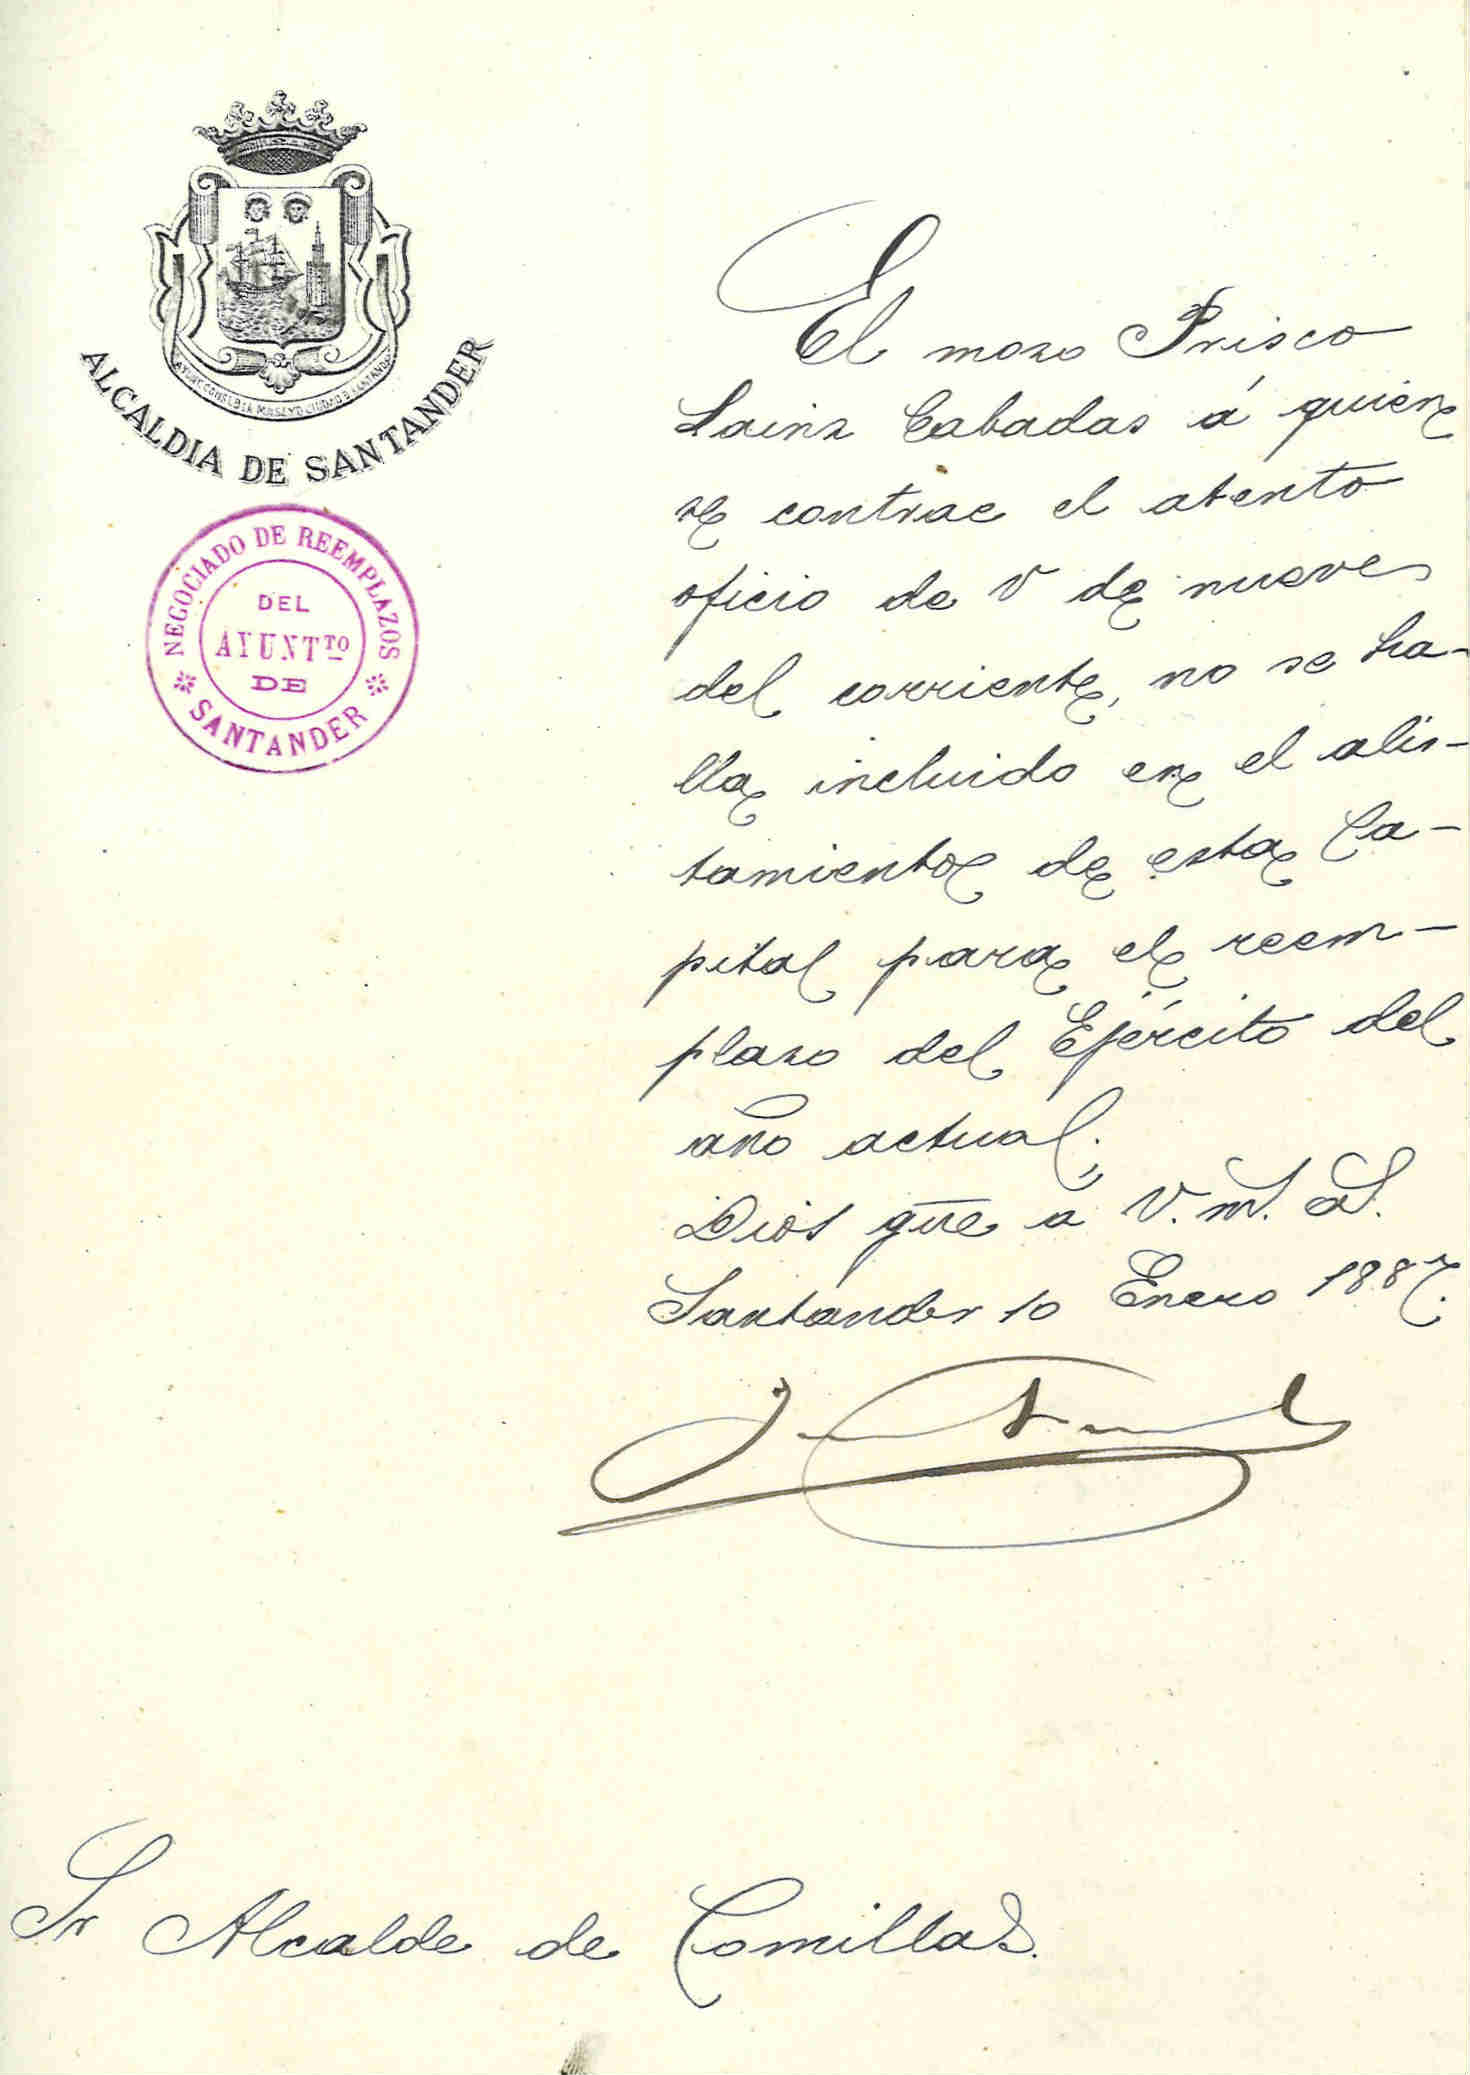 ALCALDIA DE SANTANDER
NEGOCIADO DE REEMPLAZOS
DEL
AYUNTTO
DE
SANTANDER
El mozo Prisco
Lainz Cabadas á quien
se contrae el atento
oficio de V de nueve
del corriente, no se ha-
lla incluido en el alis-
tamiento de esta Ca-
pital para el reem-
plazo del Ejército del
año actual.
Dios gūe a V. m. a.
Santander 10 Enero 1887.
Sr Alcalde de Comillas.